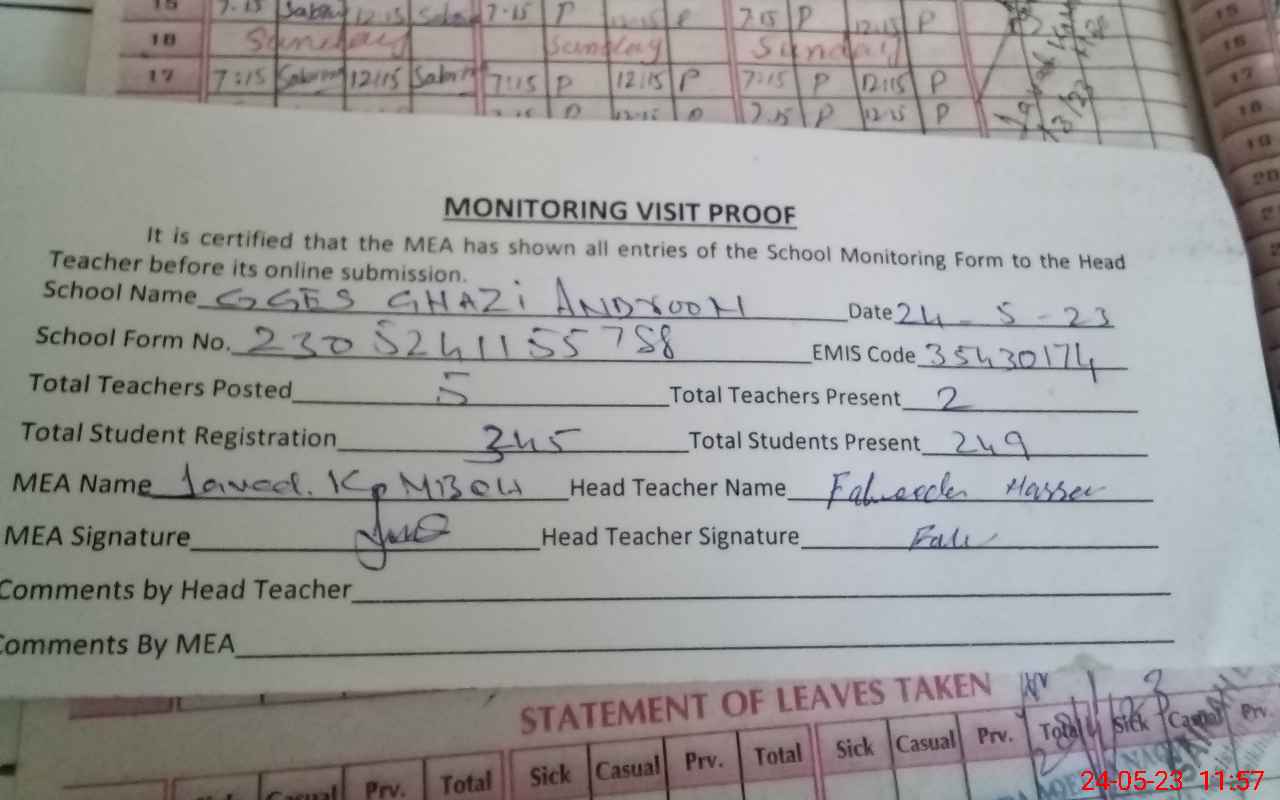 15 7.15 Sabrin 12.15 7.15 P 12.15 P 7.15 P 12.15 P 15
16 Sunday Sunday Sunday 16
17 7:15 Sabrin 12:15 Sabrin 7:15 P 12:15 P 7:15 P 12:15 P 17
P 12.15 P 7.15 P 12.15 P 18
19
20
MONITORING VISIT PROOF
It is certified that the MEA has shown all entries of the School Monitoring Form to the Head
Teacher before its online submission.
School Name GGES GHAZi ANDROON Date 24-5-23
School Form No. 2305241155758 EMIS Code 35430174
Total Teachers Posted 5 Total Teachers Present 2
Total Student Registration 345 Total Students Present 249
MEA Name Javed. Head Teacher Name
MEA Signature Head Teacher Signature
Comments by Head Teacher
Comments By MEA
STATEMENT OF LEAVES TAKEN
Casual Prv. Total Sick Casual Prv. Total Sick Casual Prv. Total Sick Casual Prv.
24-05-23 11:57